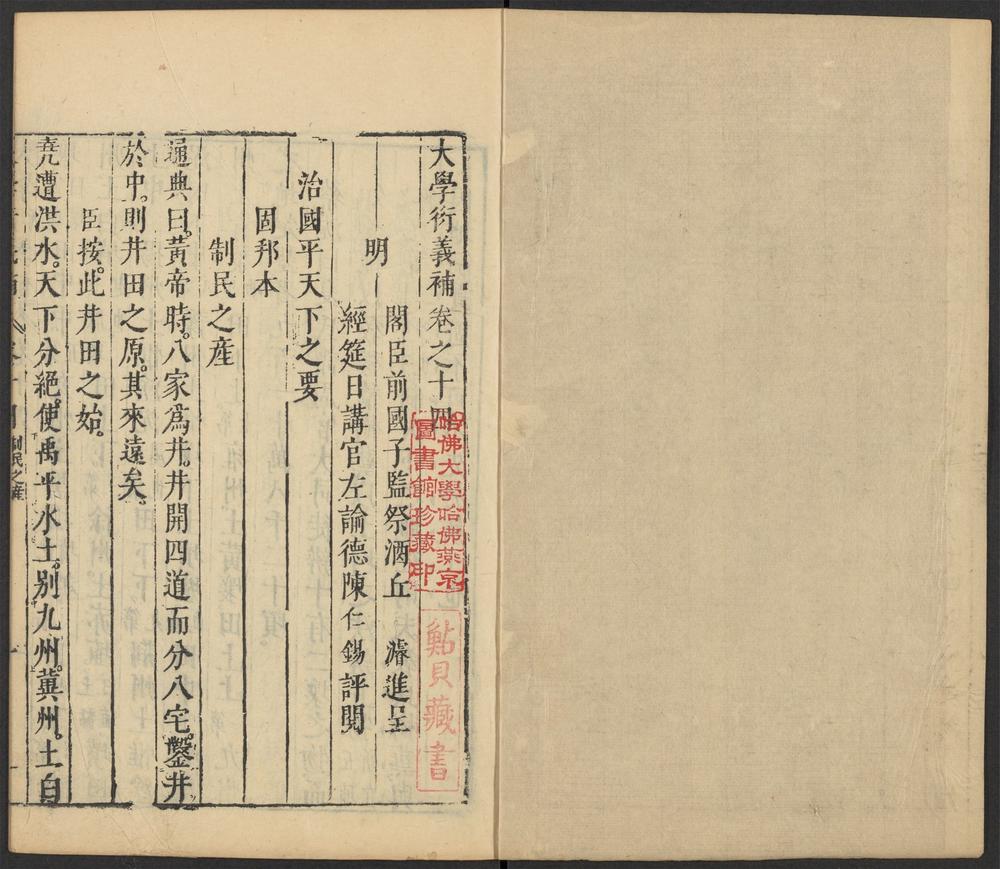 大學衍義補卷之十四
明
閣臣前國子監祭酒丘　濬進呈
經筵日講官左諭德陳仁錫評閱
治國平天下之要
固邦本
制民之產
通典曰。黃帝時。八家爲井。井開四道而分八宅。鑿井
於中。則井田之原。其來遠矣。
臣按。此井田之始。
堯遭洪水。天下分絕。使禹平水土。別九州。冀州。土白
制民之產
哈佛大學哈佛燕京
圖書館珍藏印
鮎貝藏書